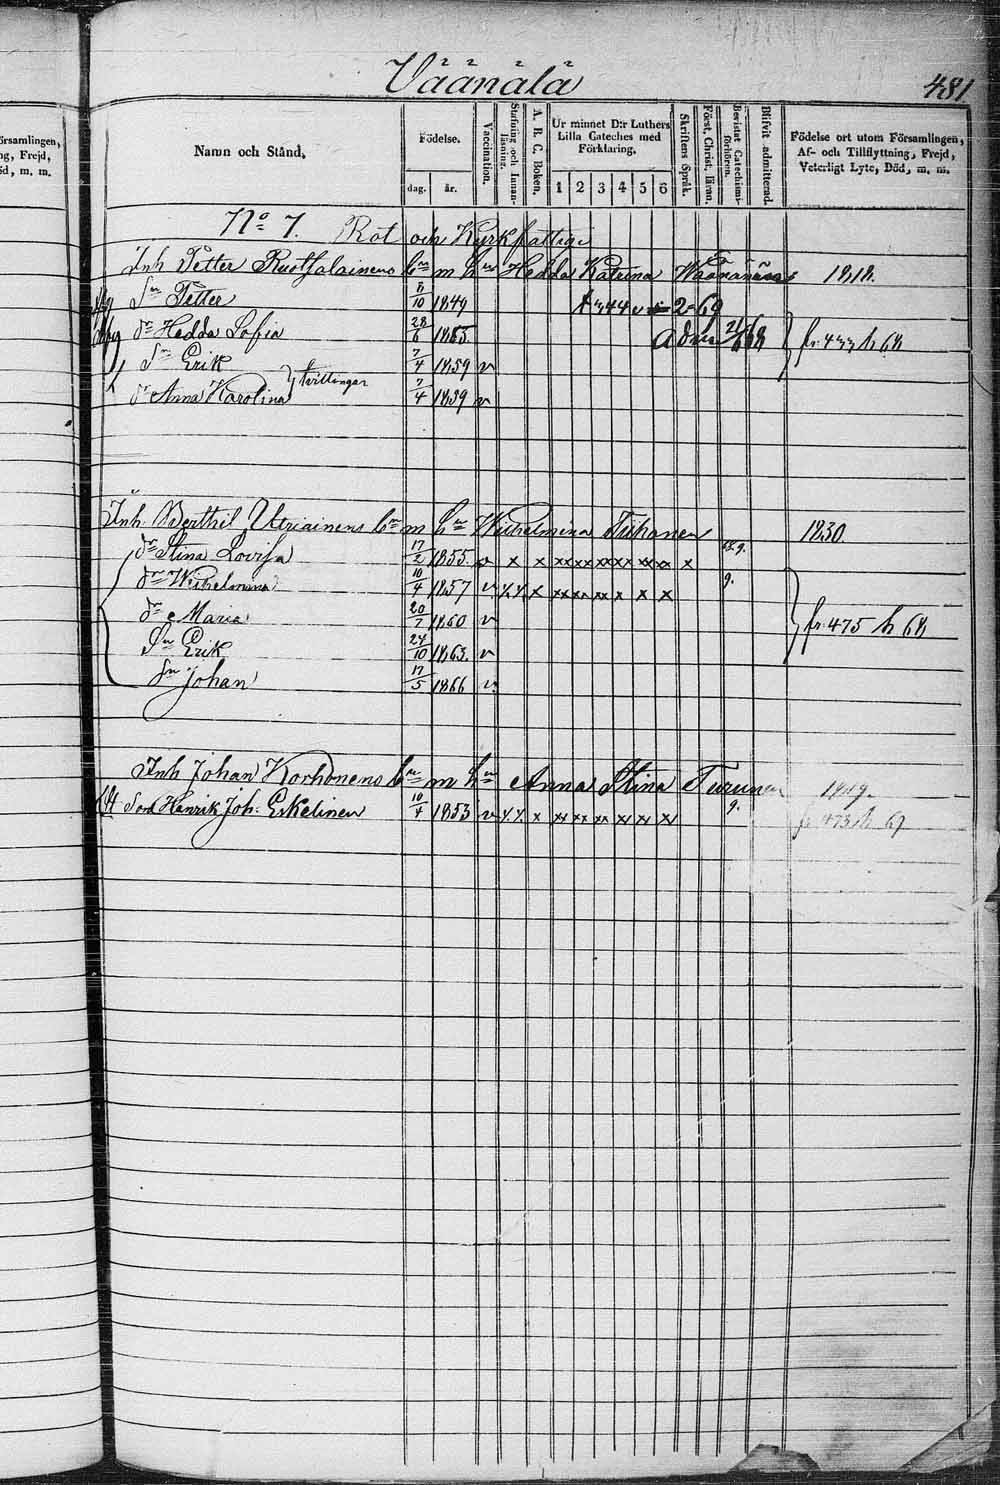 Väänälä
481
örsamlingen,
ng, Frejd,
öd, m. m.
Namn och Stånd.
Födelse.
dag. år.
Vaccination.
Stafning och Innan-
läsning.
A. B. C. Boken.
Ur minnet D:r Luthers
Lilla Cateches med
Förklaring.
1 2 3 4 5 6
Skriftens Språk.
Först. Christ. läran.
Bevistat Catechismi-
förhören.
Blifvit admitterad.
Födelse ort utom Församlingen,
Af- och Tillflyttning, Frejd,
Veterligt Lyte, Död, m. m.
No 7. Rot och Kyrkfattige
Inh Petter Hedda Katrina 1818.
Sn Petter 8/10 1849 2 69
dr Hedda Sofia 28/6 1853 fr. 433 h 68
Sn Erik 7/4 1859 v
tvillingar
dr Anna Karolina 7/4 1859 v
Inh. Berthil Utriainens bn m hu Wilhelmina Tiihonen 1830.
dr Stina Lovisa 17/2 1855. v x x xx xx xx xx xx xx x
dr Wilhelmina 10/4 1857 v x x xx xx xx x x x 9.
dr Maria 20/7 1860 v fr. 475 h 68
Sn Erik 24/10 1863. v
Sn Johan 17/5 1866 v.
Inh Johan Korhonens bn m hu Anna Stina Turunen
Son Henrik Joh. Eskelinen 10/4 1853 v x xx xx xx xx xx xx 9. fr 473 h 67